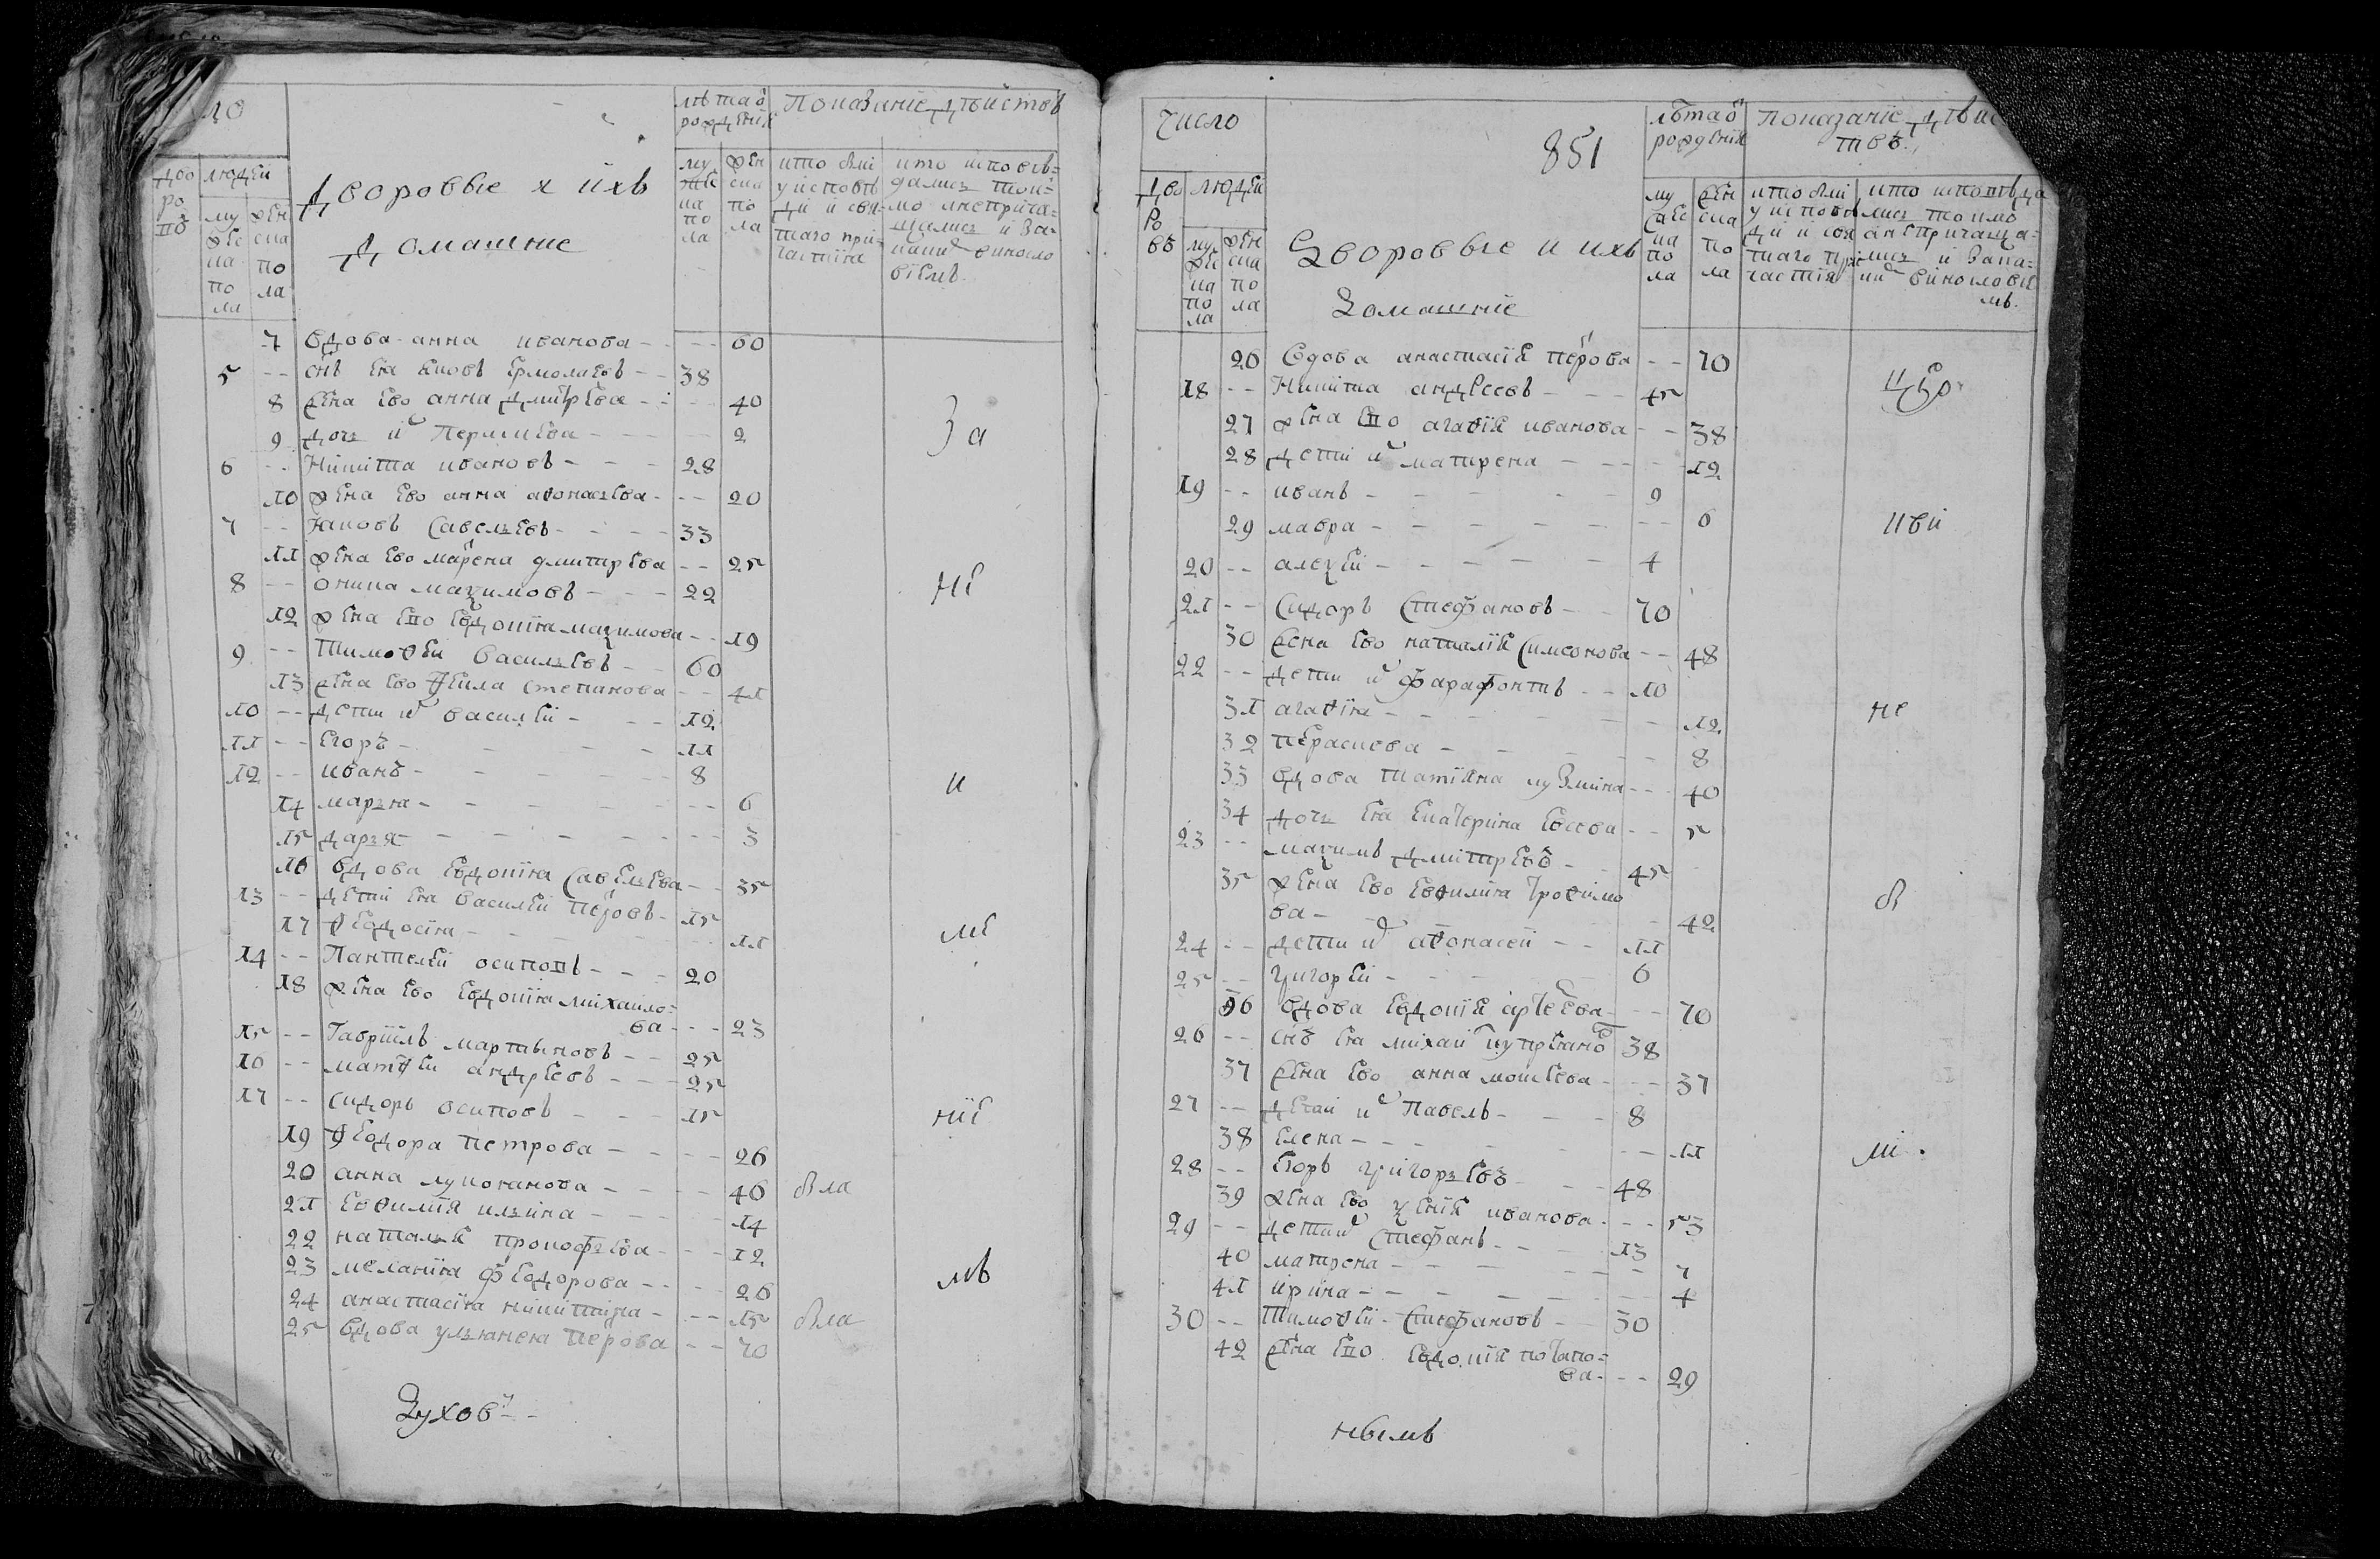 ло
лѣтаѿ рожденїя
Показанїе действъ
дворовъ
людей
мужеска пола
женска пола
Дворовые и ихъ
Домашние
мужеска пола
женска пола
кто были у исповеди и святаго причастия
кто исповедались токмо а не причащались и за каким винословием
7 вдова анна иванова - - - 60
5 - - снъ ея яковъ Ермолаевъ - - 38
8 жена ево анна дмитрѣева - - - 40
За
9 дочь их Перасковья - - - - 2
6 - - Никита ивановъ - - - 28
10 жена ево анна афонасьева - - - 20
7 - - Яковъ Савельевъ - - - - 33
11 жена ево матрена дмитрѣева - - 25
Не
8 - - оника маѯимовъ - - - 22
12 жена ево Евдокїя маѯимова - - 19
9 - - Тимоѳей васильевъ - - 60
13 жена ево Ѳекла степанова - - 41
10 - - дети их василей - - - 12
11 - - Егоръ - - - - 11
12 - - иванъ - - - - - 8
и
14 марья - - - - - - 6
15 дарья - - - - - - - 3
16 вдова Евдокїя савельева - - 35
13 - - дети ея василей петровъ - 15
17 Ѳеодосїя - - - - - 11
ме
14 - - Пантелей осиповъ - - - 20
18 жена ево Евдокїя михайло=
ва - - - 23
15 - - Гаврїилъ мартыновъ - - 25
16 - - матѳей андреевъ - - - 25
17 - - сидоръ осиповъ - - - 15
нїе
19 Ѳеодора петрова - - - - 26
20 анна лукоянова - - - - 46 была
21 Евѳимия ильина - - - - 14
22 наталья прокофьева - - - 12
23 меланїя федорова - - - 26
мъ
24 анастасїя никитина - - - 15 была
25 вдова ульянея петрова - - 70
Духов -
Число
851
лѣтаѿ рожденїя
показанїе действъ
дворовъ
людей
мужеска пола
женска пола
Дворовые и ихъ
Домашнїе
мужеска пола
женска пола
кто были у исповеди и святаго причастия
кто исповедались токмо а не причащались и за каким винословием
26 вдова анастасїя петрова - - 70
18 - - Никита андреевъ - - - 45
27 жена ево агаѳїя иванова - - 38
28 дети их матрена - - - - 12
19 - - иванъ - - - - - 9
29 мавра - - - - - - - 6
20 - - алеѯей - - - - - 4
21 - - Сидоръ Стефановъ - - 70
30 жена ево наталїя симеонова - - 48
22 - - дети их фарафонтий - - 10
31 агаѳїя - - - - - - 12
не
32 перасковья - - - - - 8
33 вдова татїяна кузмина - - - 40
34 дочь ея Екатерина Евсева - - 5
23 - - маѯимъ дмитрѣевъ - 45
35 жена ево Евѳимия Трофимо
ва - - - 42
24 - - дети их афонасей - - 11
25 - - григорей - - - - 6
36 вдова Евдокїя - - 70
26 - - снъ ея михаил 38
37 жена ево анна моисеева - - - 37
27 - - дети их Павелъ - - - 8
38 Елена - - - - - - 11
28 - - Егоръ григорьевъ - - 48
39 жена ево ѯенїя иванова - - - 53
29 - - дети их Стефанъ - - - 13
40 матрена - - - - - - 7
41 ирина - - - - - - - 4
30 - - Тимоѳей Стефановъ - - 30
42 жена ево Евдокїя потапо=
ва - - - 29
нымъ